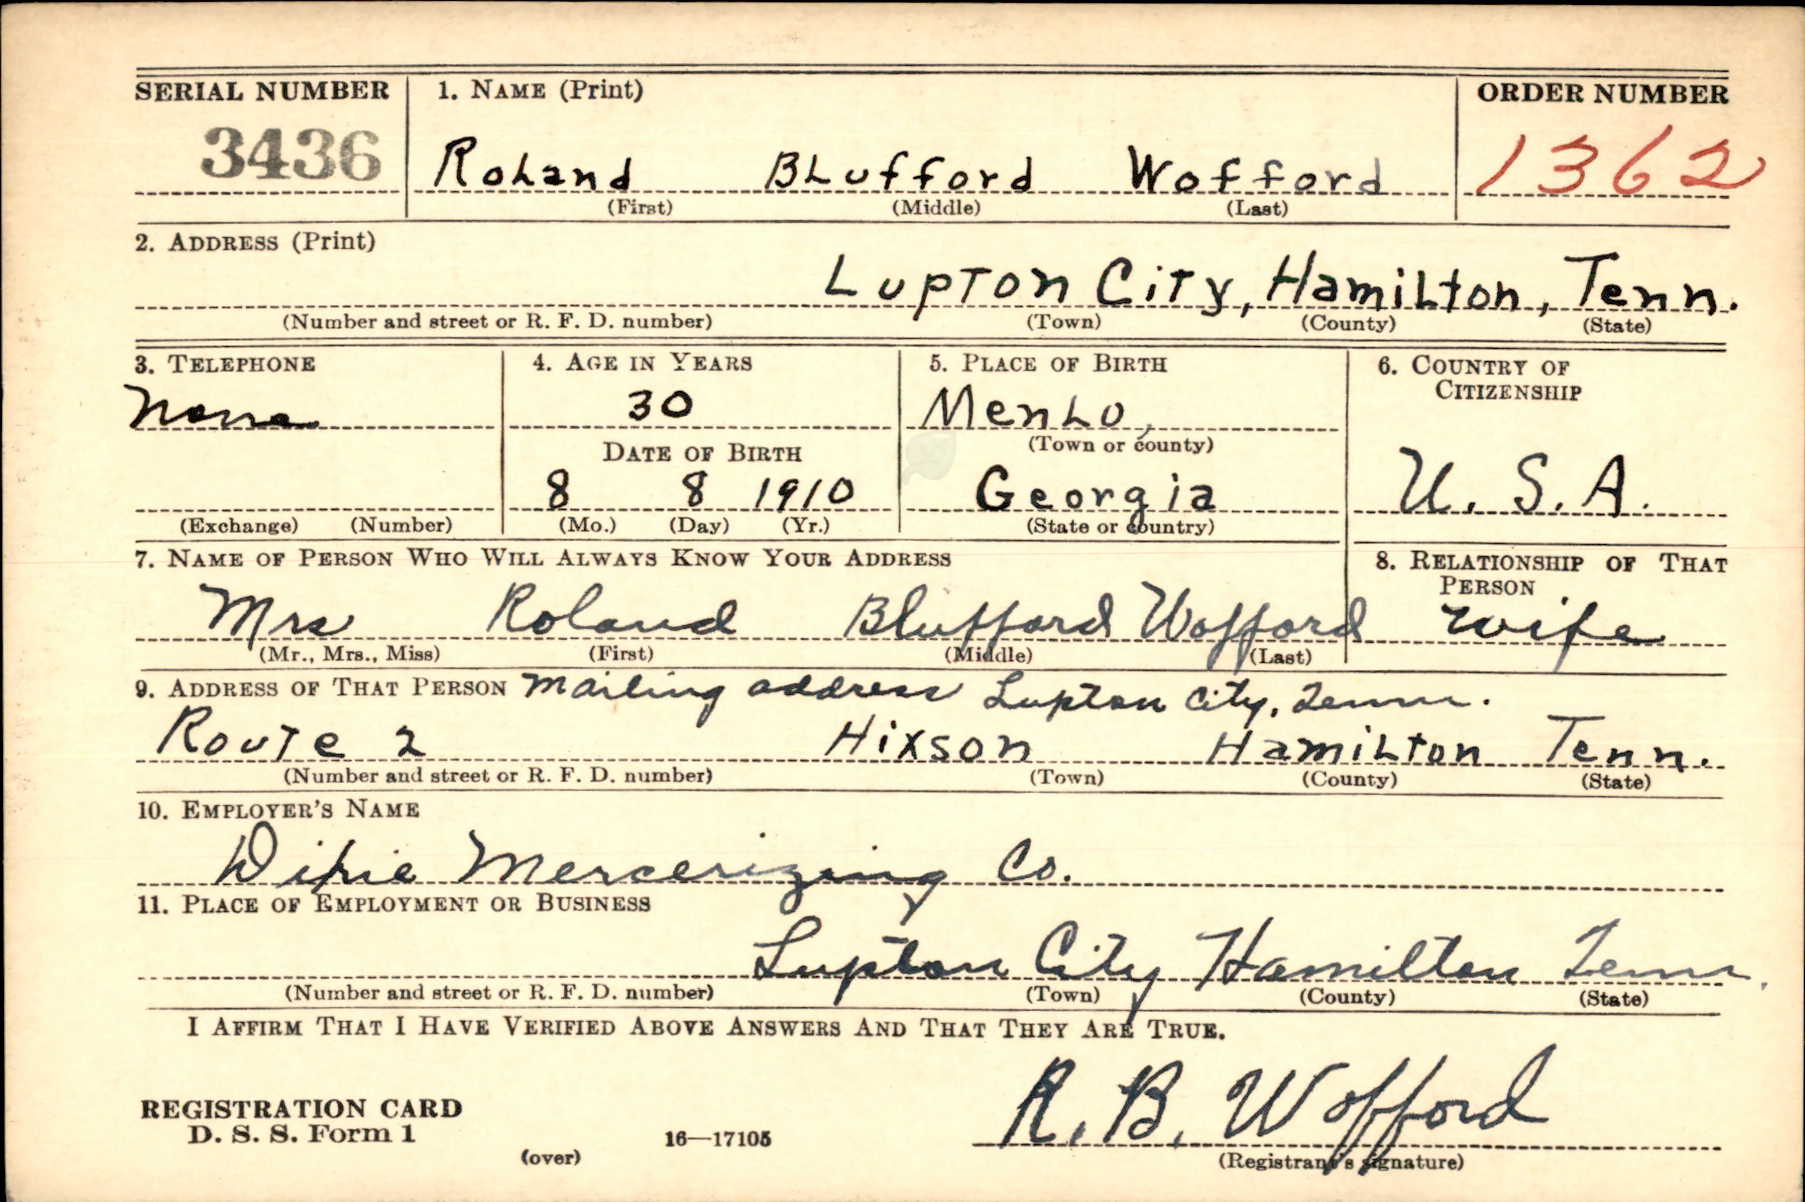 SERIAL NUMBER 1. NAME (Print) ORDER NUMBER
3436 Roland Blufford Wofford 1362
(First) (Middle) (Last)
2. ADDRESS (Print)
Lupton City, Hamilton, Tenn.
(Number and street or R. F. D. number) (Town) (County) (State)
3. TELEPHONE 4. AGE IN YEARS 5. PLACE OF BIRTH 6. COUNTRY OF CITIZENSHIP
None 30 Menlo,
(Town or county)
DATE OF BIRTH
8 8 1910 Georgia U. S. A.
(Exchange) (Number) (Mo.) (Day) (Yr.) (State or country)
7. NAME OF PERSON WHO WILL ALWAYS KNOW YOUR ADDRESS 8. RELATIONSHIP OF THAT PERSON
Mrs Roland Blufford Wofford wife
(Mr., Mrs., Miss) (First) (Middle) (Last)
9. ADDRESS OF THAT PERSON Mailing address Lupton City, Tenn.
Route 2 Hixson Hamilton Tenn.
(Number and street or R. F. D. number) (Town) (County) (State)
10. EMPLOYER'S NAME
Dixie Mercerizing Co.
11. PLACE OF EMPLOYMENT OR BUSINESS
Lupton City Hamilton Tenn.
(Number and street or R. F. D. number) (Town) (County) (State)
I AFFIRM THAT I HAVE VERIFIED ABOVE ANSWERS AND THAT THEY ARE TRUE.
R. B. Wofford
REGISTRATION CARD
D. S. S. Form 1 16—17105
(over) (Registrant's signature)